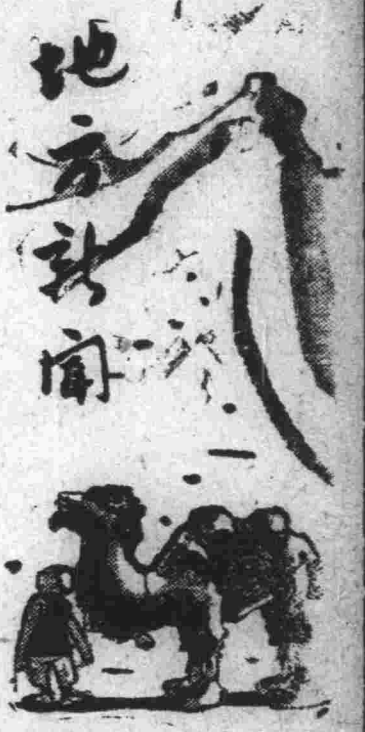 地方新聞